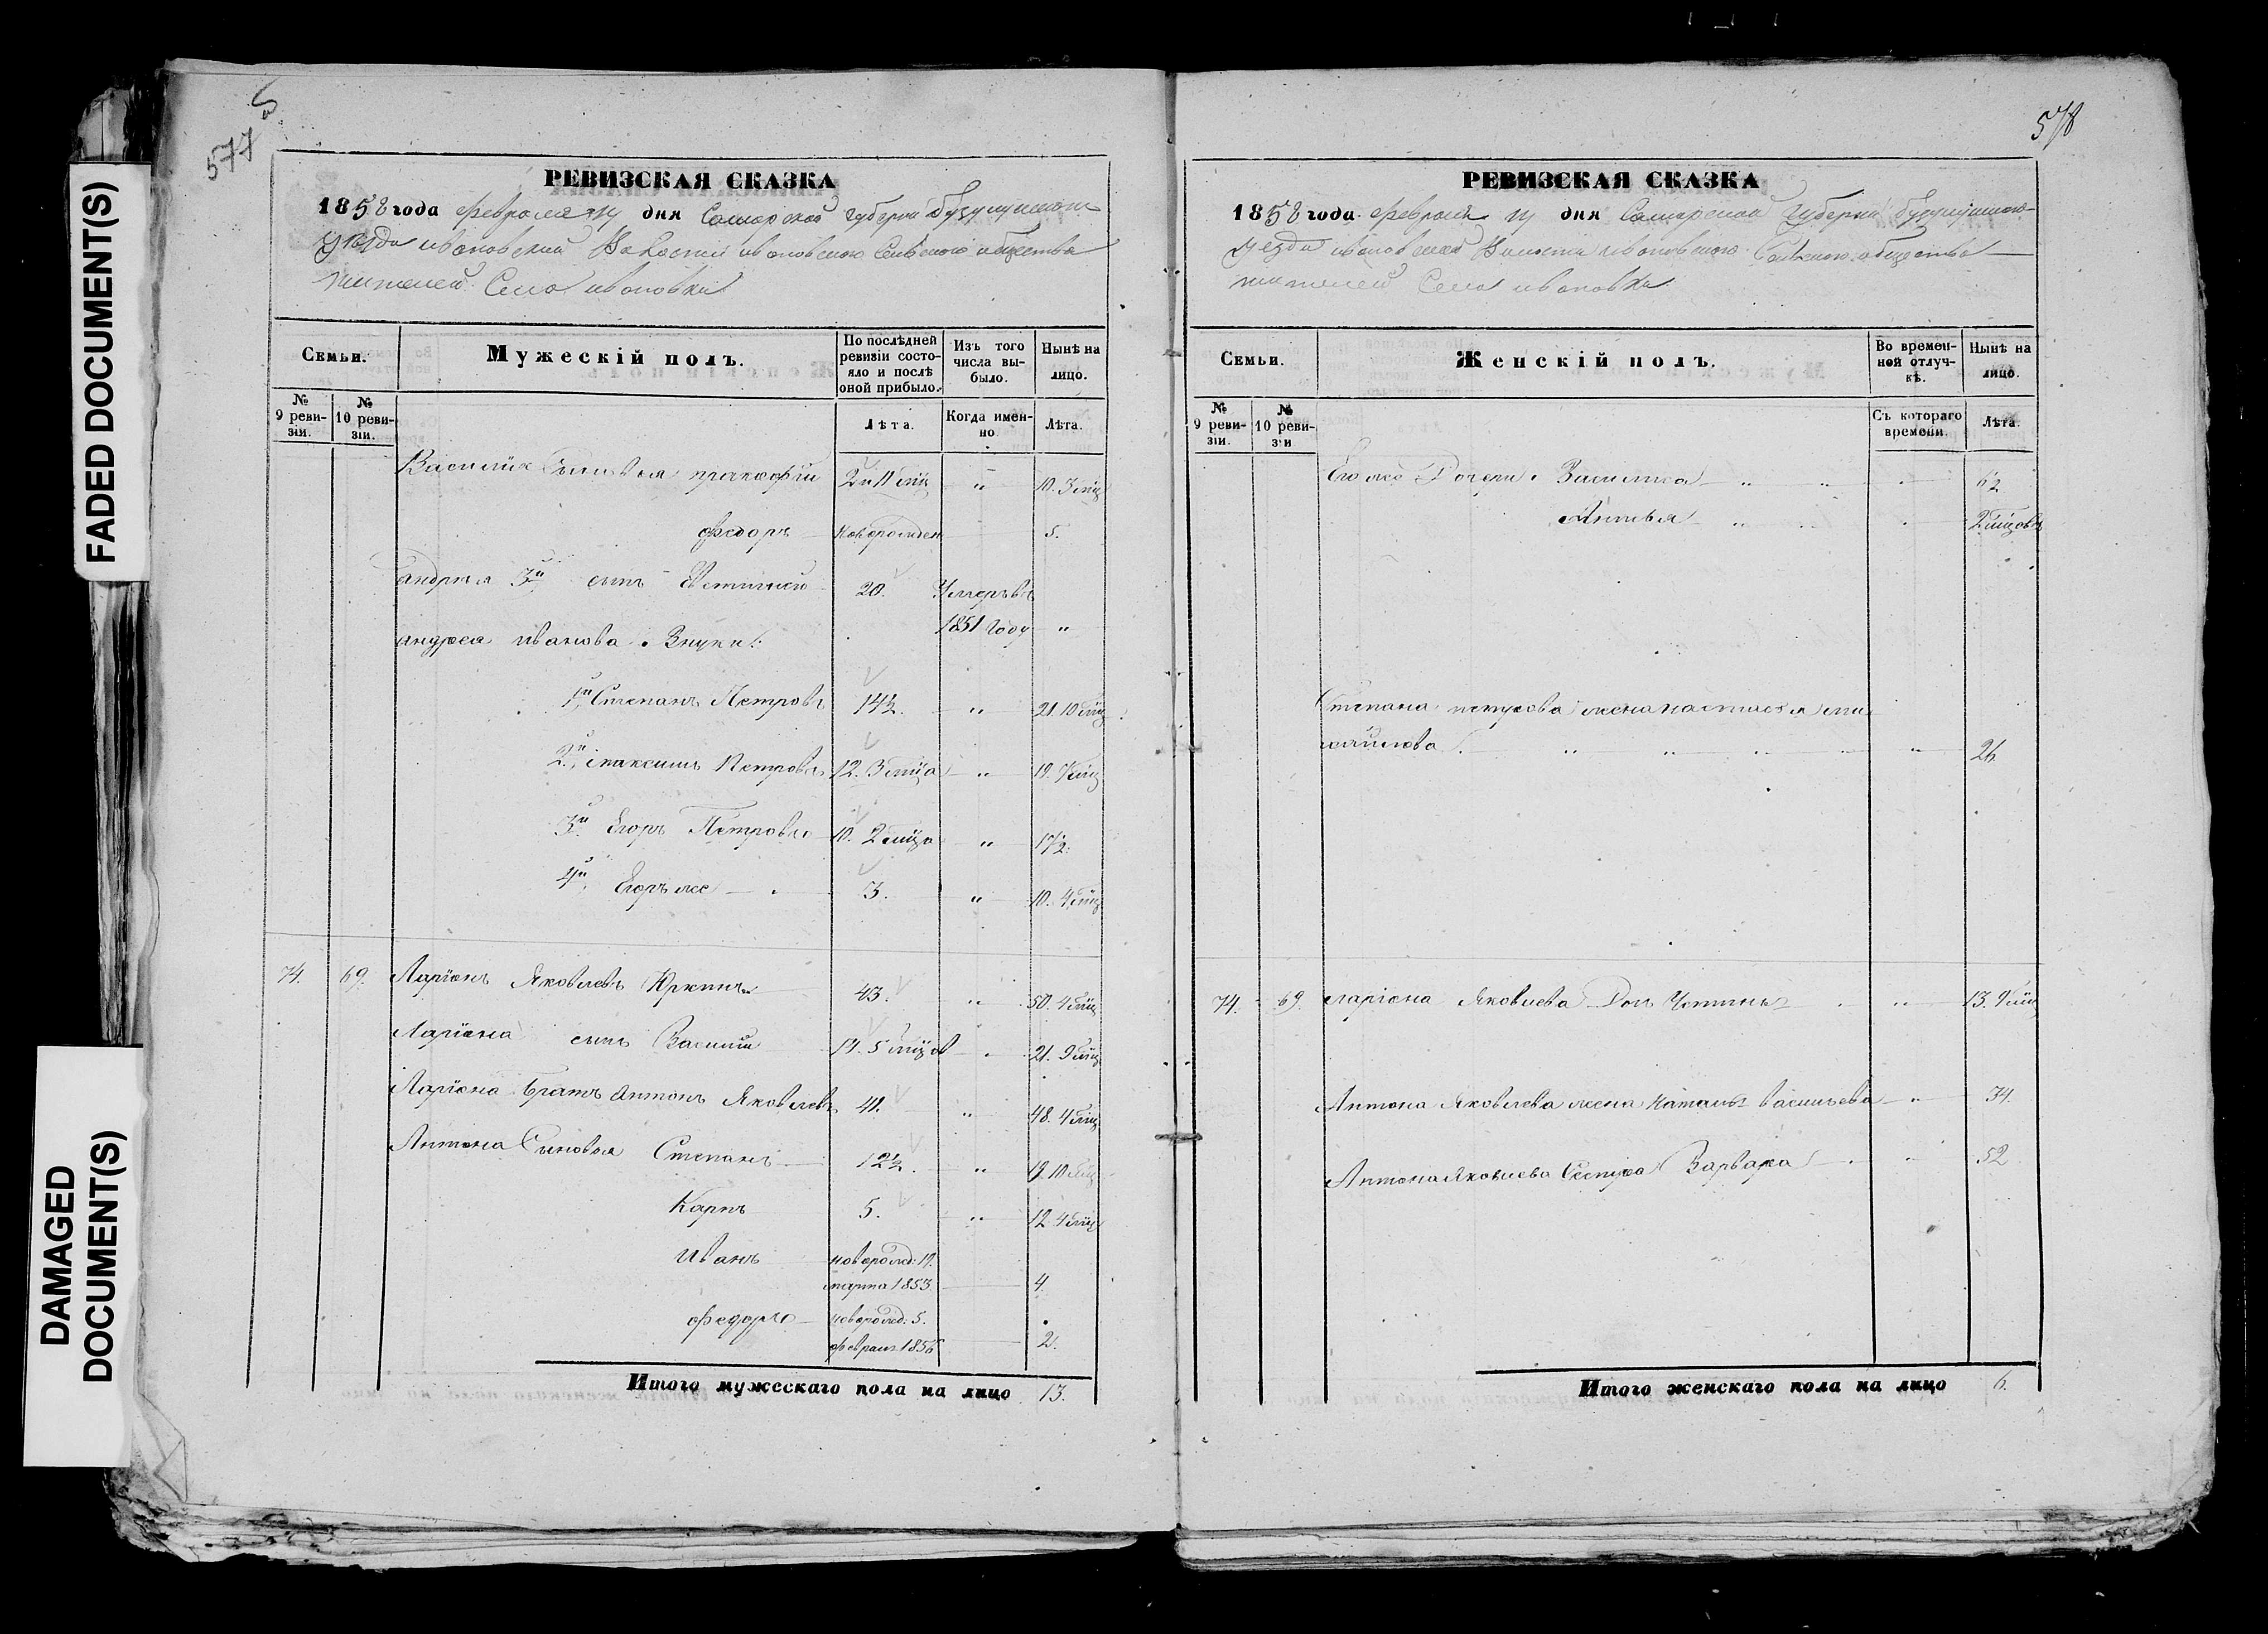 FADED DOCUMENT(S)
DAMAGED
DOCUMENT(S)
577
РЕВИЗСКАЯ СКАЗКА
1858 года февраля 14 дня Самарской губерніи Бузулукскаго
уезда ивановской Волости ивановскаго Сельскаго общества
жителей Села ивановки
Семьи.
Мужескій полъ.
По послѣдней ревизіи состояло и послѣ оной прибыло.
Изъ того числа выбыло.
Нынѣ на лицо.
№ 9 ревизіи.
№ 10 ревизіи.
Лѣта.
Когда именно.
Лѣта.
Василія Сыновья прокофій 2 и 11 мц " 10. 3 мц
федоръ новорожден 5.
андрея 3й сынъ 20. Умеръ въ
1851 году "
андрея иванова внуки:
1й Степанъ Петровъ 14½. " 21. 10 мц
2й максимъ Петровъ 12. 3 мца " 19.
3й Егоръ Петровъ 10. 2 мца " 17½.
4й Егоръ же 3. " 10. 4 мц
74. 69. Ларіонъ Яковлевъ 43. " 50. 4 мц
Ларіона сынъ Василий 14. 5 мцов 21. 9 мц
Ларіона братъ Антонъ Яковлевъ 41. " 48. 4 мц
Антона Сыновья Степанъ 12½. " 19. 10 мц
Карпъ 5. " 12. 4 мц
Иванъ новорожд:
марта 1853 4.
федоръ новорожд: 5.
февраля 1856 2.
Итого мужескаго пола на лицо 13.
578
РЕВИЗСКАЯ СКАЗКА
1858 года февраля 14 дня Самарской губерніи Бузулукскаго
уезда ивановской Волости ивановскаго Сельскаго общества
жителей Села ивановки
Семьи.
Женскій полъ.
Во временной отлучкѣ.
Нынѣ на лицо.
№ 9 ревизіи.
№ 10 ревизіи
Съ котораго времени.
Лѣта.
Его же Дочери Василиса " "
" " 2 мцовъ
Степана петрова жена настасья
" " " 26
74. 69. ларіона Яковлева Дочь " 13.
Антона Яковлева жена Наталья васильева " 34.
Антона Яковлева Сестра Варвара " 52
Итого женскаго пола на лицо 6.